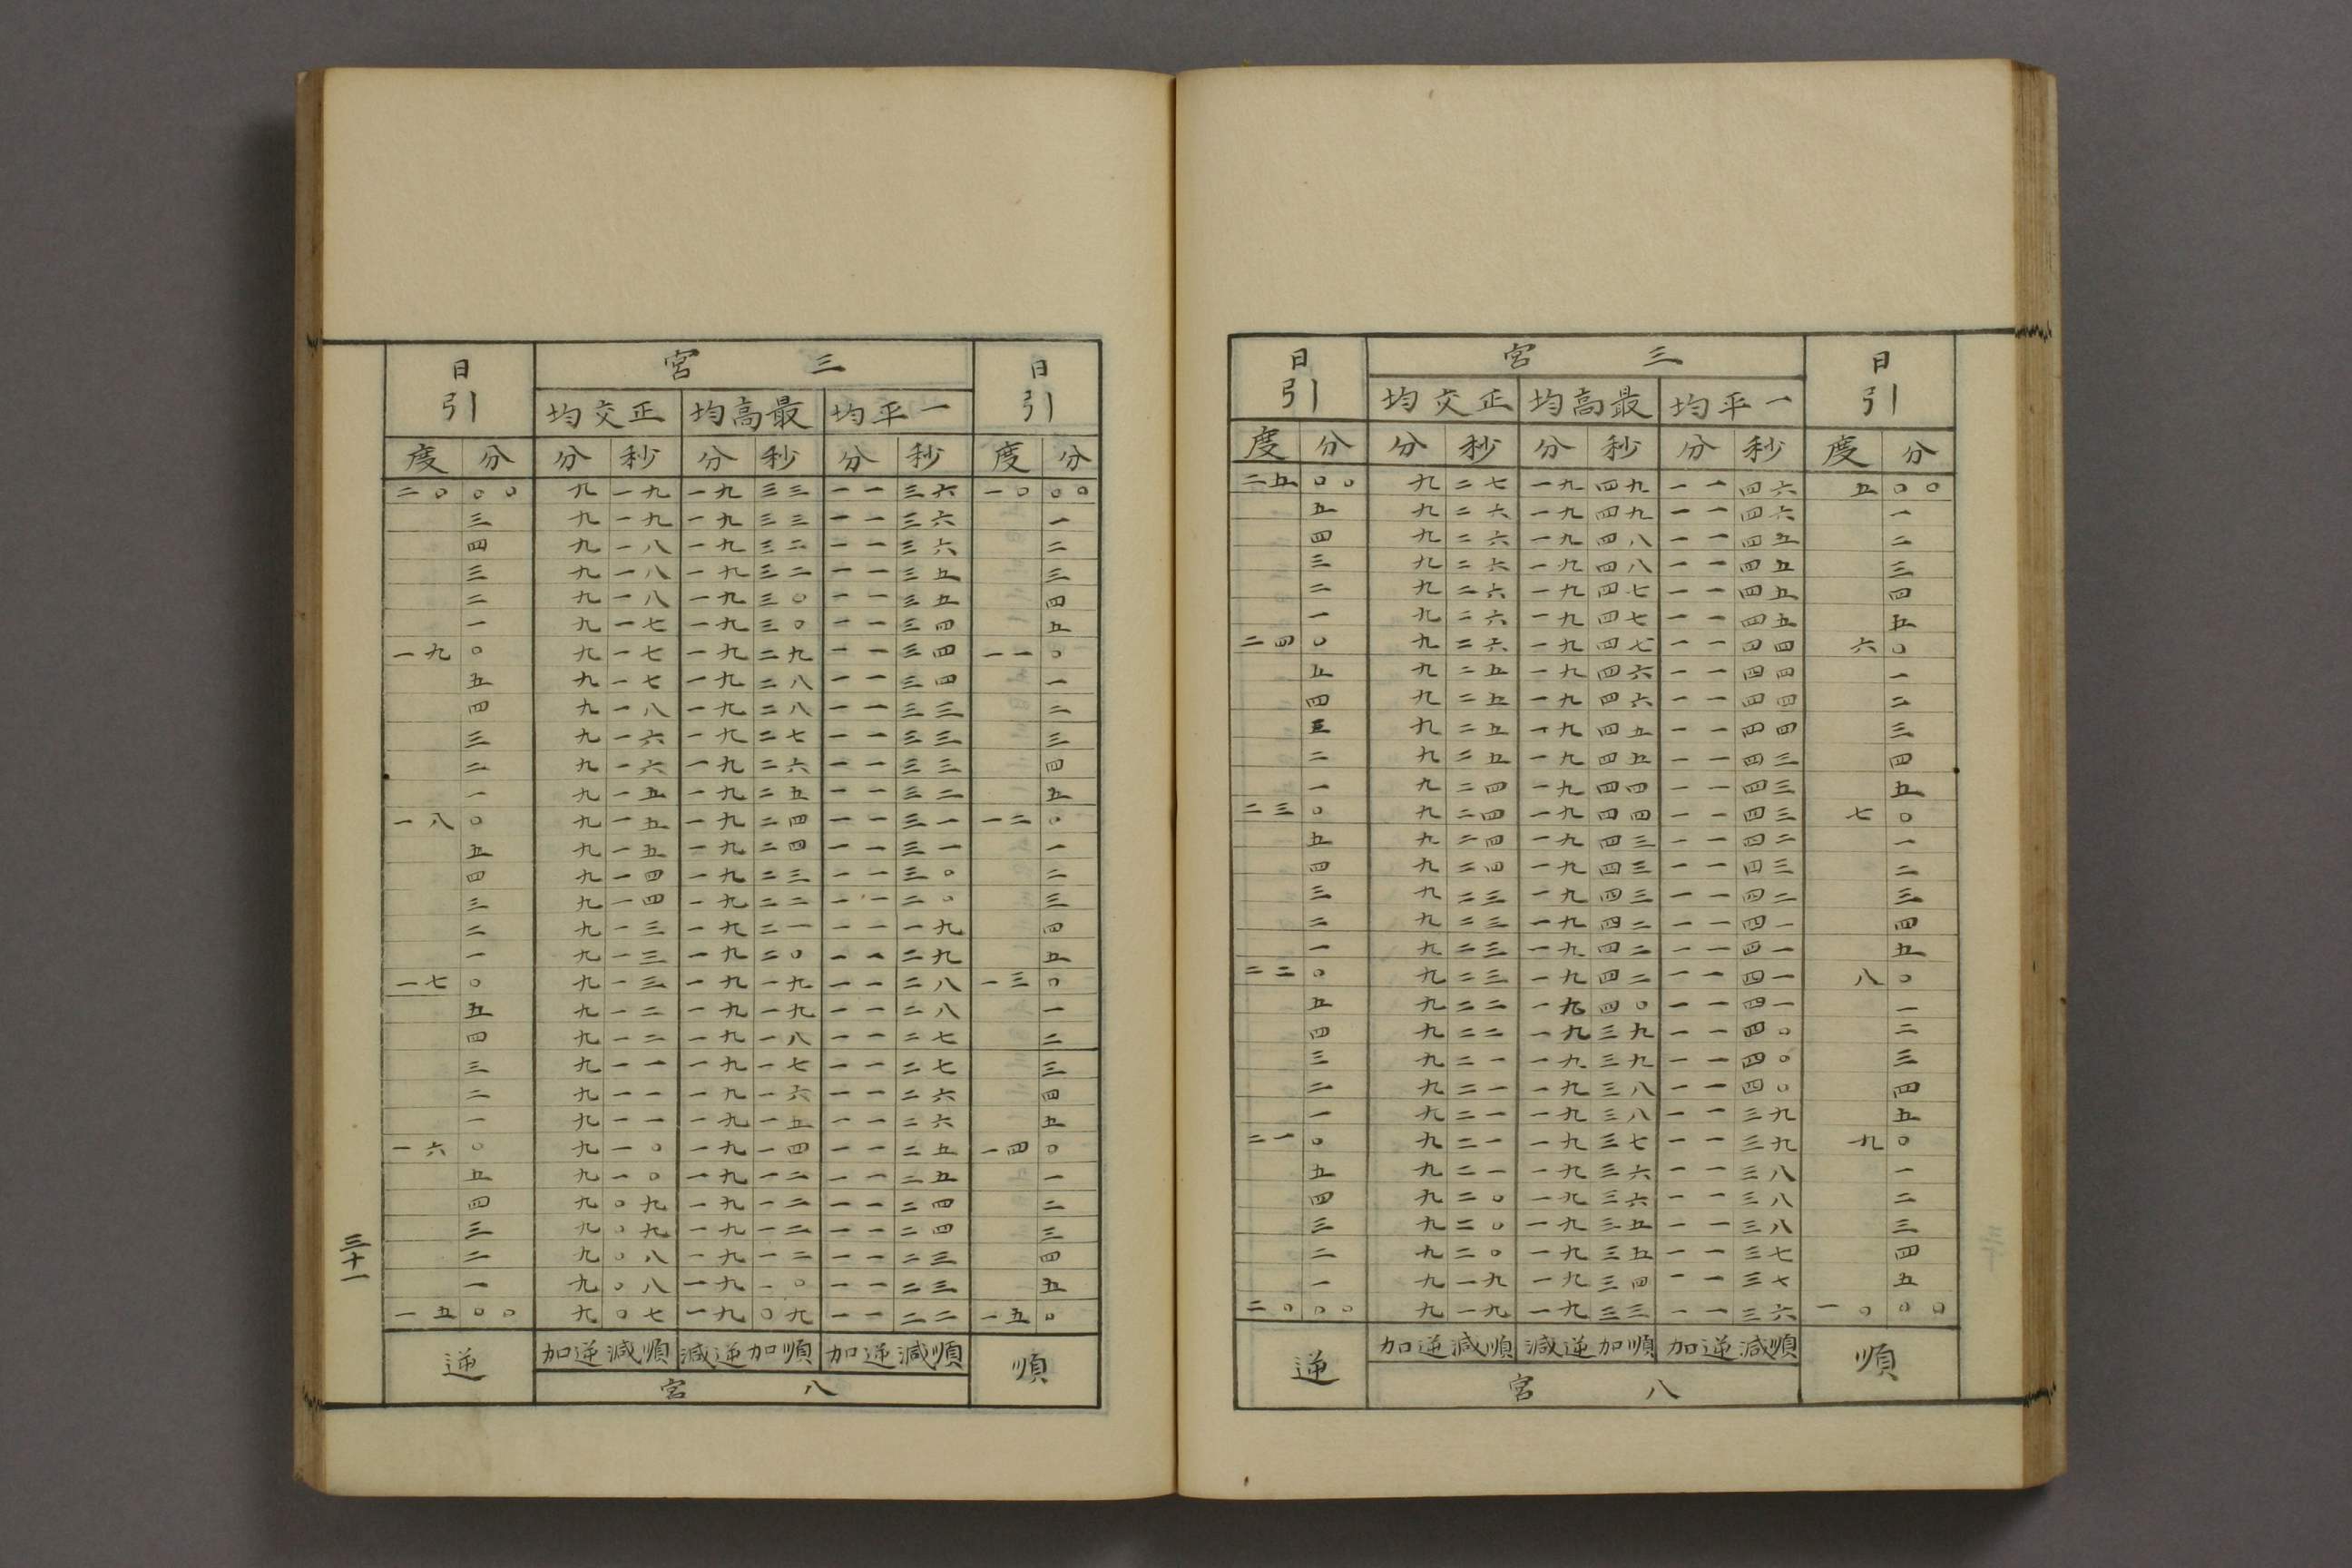 日引 三宮 日引
一平均 最高均 正交均
度 分 分 秒 分 秒 分 秒 度 分
二五 〇〇 九 二七 一九 四九 一一 四六 五 〇〇
五 九 二六 一九 四九 一一 四六 一
四 九 二六 一九 四八 一一 四五 二
三 九 二六 一九 四八 一一 四五 三
二 九 二六 一九 四七 一一 四五 四
一 九 二六 一九 四七 一一 四五 五
二四 〇 九 二六 一九 四七 一一 四四 六 〇
五 九 二五 一九 四六 一一 四四 一
四 九 二五 一九 四六 一一 四四 二
三 九 二五 一九 四五 一一 四四 三
二 九 二五 一九 四五 一一 四三 四
一 九 二四 一九 四四 一一 四三 五
二三 〇 九 二四 一九 四四 一一 四三 七 〇
五 九 二四 一九 四三 一一 四二 一
四 九 二四 一九 四三 一一 四三 二
三 九 二三 一九 四三 一一 四二 三
二 九 二三 一九 四二 一一 四一 四
一 九 二三 一九 四二 一一 四一 五
二二 〇 九 二三 一九 四二 一一 四一 八 〇
五 九 二二 一九 四〇 一一 四一 一
四 九 二二 一九 三九 一一 四〇 二
三 九 二一 一九 三九 一一 四〇 三
二 九 二一 一九 三八 一一 四〇 四
一 九 二一 一九 三八 一一 三九 五
二一 〇 九 二一 一九 三七 一一 三九 九 〇
五 九 二一 一九 三六 一一 三八 一
四 九 二〇 一九 三六 一一 三八 二
三 九 二〇 一九 三五 一一 三八 三
二 九 二〇 一九 三五 一一 三七 四
一 九 一九 一九 三四 一一 三七 五
二〇 〇〇 九 一九 一九 三三 一一 三六 一〇 〇〇
順 順減逆加 順加逆減 順減逆加 逆
八宮
日引 三宮 日引
一平均 最高均 正交均
度 分 分 秒 分 秒 分 秒 度 分
二〇 〇〇 九 一九 一九 三三 一一 三六 一〇 〇〇
三 九 一九 一九 三三 一一 三六 一
四 九 一八 一九 三二 一一 三六 二
三 九 一八 一九 三二 一一 三五 三
二 九 一八 一九 三〇 一一 三五 四
一 九 一七 一九 三〇 一一 三四 五
一九 〇 九 一七 一九 二九 一一 三四 一一 〇
五 九 一七 一九 二八 一一 三四 一
四 九 一八 一九 二八 一一 三三 二
三 九 一六 一九 二七 一一 三三 三
二 九 一六 一九 二六 一一 三三 四
一 九 一五 一九 二五 一一 三二 五
一八 〇 九 一五 一九 二四 一一 三一 一二 〇
五 九 一五 一九 二四 一一 三一 一
四 九 一四 一九 二三 一一 三〇 二
三 九 一四 一九 二二 一一 二〇 三
二 九 一三 一九 二一 一一 一九 四
一 九 一三 一九 二〇 一一 二九 五
一七 〇 九 一三 一九 一九 一一 二八 一三 〇
五 九 一二 一九 一九 一一 二八 一
四 九 一二 一九 一八 一一 二七 二
三 九 一一 一九 一七 一一 二七 三
二 九 一一 一九 一六 一一 二六 四
一 九 一一 一九 一五 一一 二六 五
一六 〇 九 一〇 一九 一四 一一 二五 一四 〇
五 九 一〇 一九 一二 一一 二五 一
四 九 〇九 一九 一二 一一 二四 二
三 九 〇九 一九 一二 一一 二四 三
二 九 〇八 一九 一二 一一 二三 四
一 九 〇八 一九 一〇 一一 二三 五
一五 〇〇 九 〇七 一九 〇九 一一 二二 一五 〇
順 順減逆加 順加逆減 順減逆加 逆
八宮
三十一